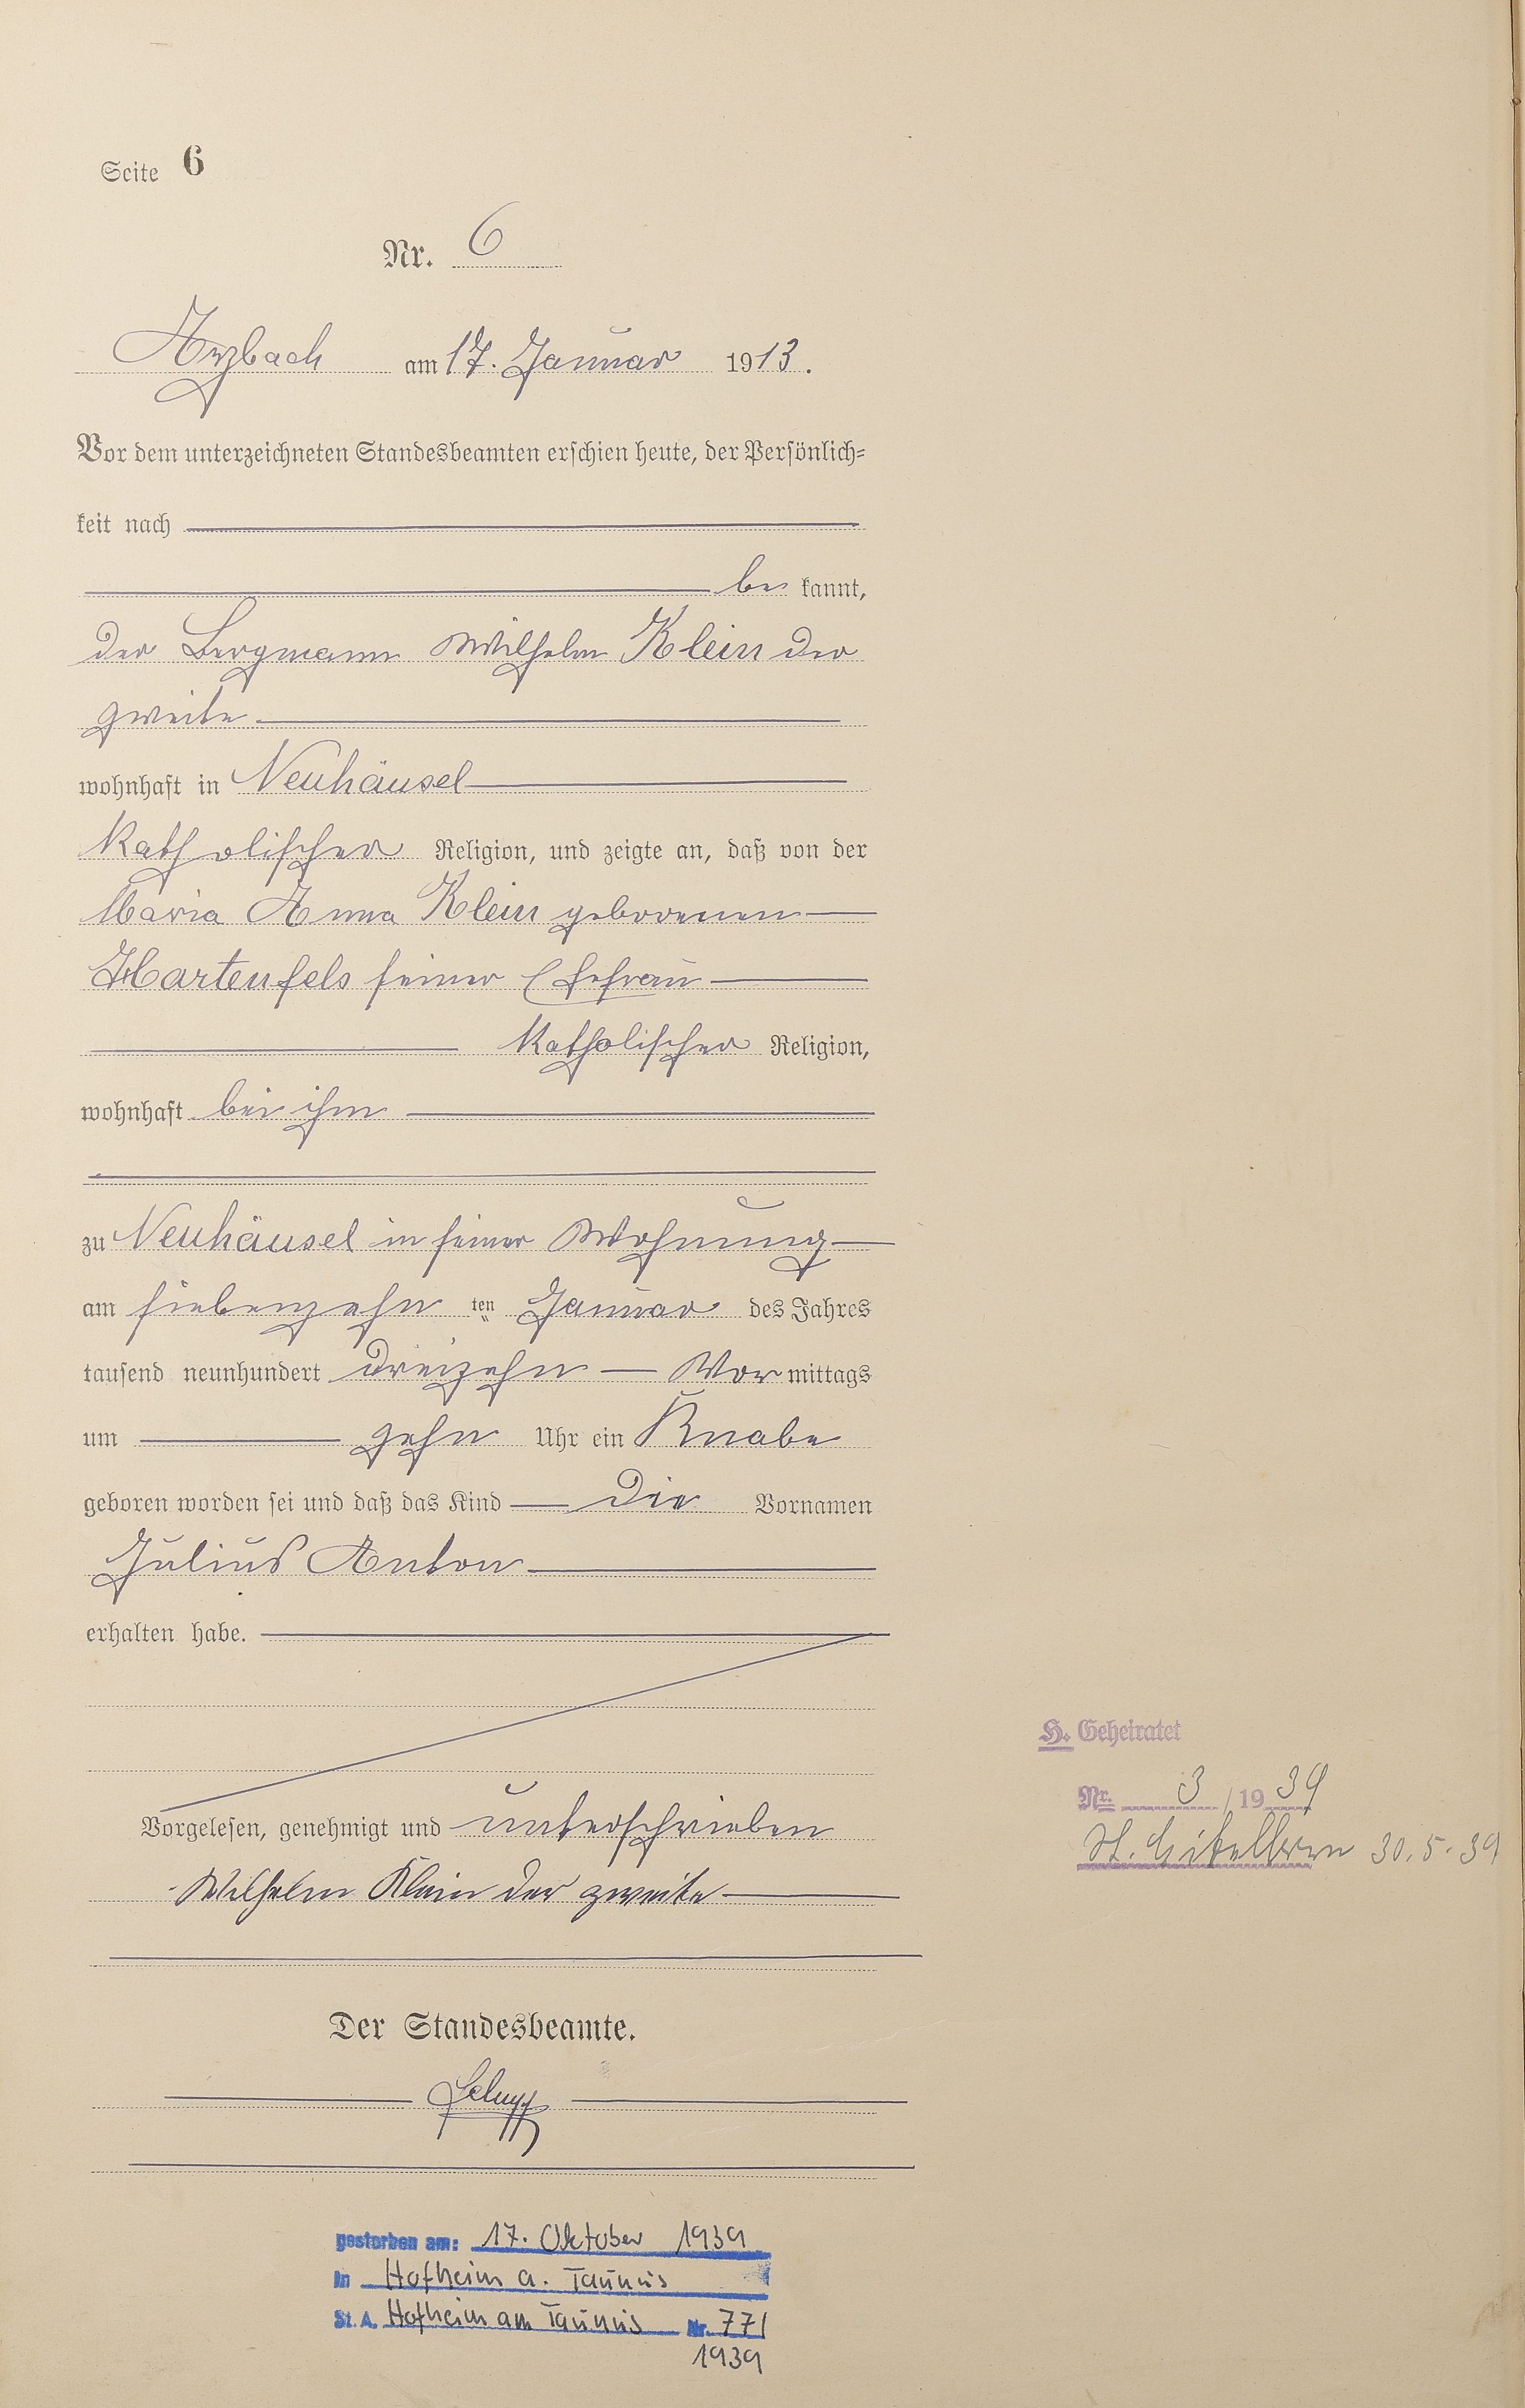 Seite 6
Nr. 6
Arzbach am 17. Januar 1913.
Vor dem unterzeichneten Standesbeamten erschien heute, der Persönlich-
keit nach
be kannt,
der Bergmann Wilhelm Klein der
zweite
wohnhaft in Neuhäusel
katholischer Religion, und zeigte an, daß von der
Maria Anna Klein geborenen
Hartenfels seiner Ehefrau
katholischer Religion,
wohnhaft bei ihm
zu Neuhäusel in seiner Wohnung
am siebenzehn ten Januar des Jahres
tausend neunhundert dreizehn Vor mittags
um zehn Uhr ein Knabe
geboren worden sei und daß das Kind die Vornamen
Julius Anton
erhalten habe.
Vorgelesen, genehmigt und unterschrieben
Wilhelm Klein der zweite
Der Standesbeamte.
H. Geheiratet
Nr. 3 / 19 39
St. 30.5.39
gestorben am: 17. Oktober 1939
in Hofheim a. Taunus
St. A. Hofheim am Taunus Nr. 77/
1939